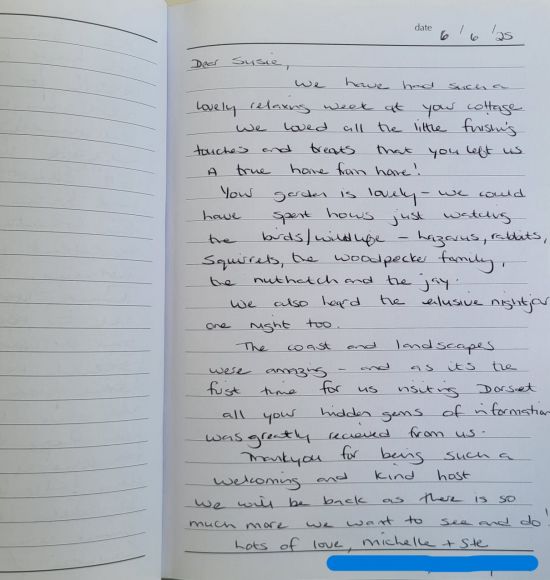 date 6/6/25
Dear Susie,
We have had such a
lovely relaxing week at your cottage
We loved all the little finishing
touches and treats that you left us
A true home from home!
Your garden is lovely - we could
have spent hours just watching
the birds/wildlife - , rabbits,
Squirrels, the woodpecker family,
the nuthatch and the jay.
We also heard the elusive nightjar
one night too.
The coast and landscapes
were amazing - and as its the
first time for us visiting Dorset
all your hidden gems of information
was greatly recieved from us.
Thankyou for being such a
welcoming and kind host
We will be back as there is so
much more we want to see and do!
Lots of love, michelle + Ste